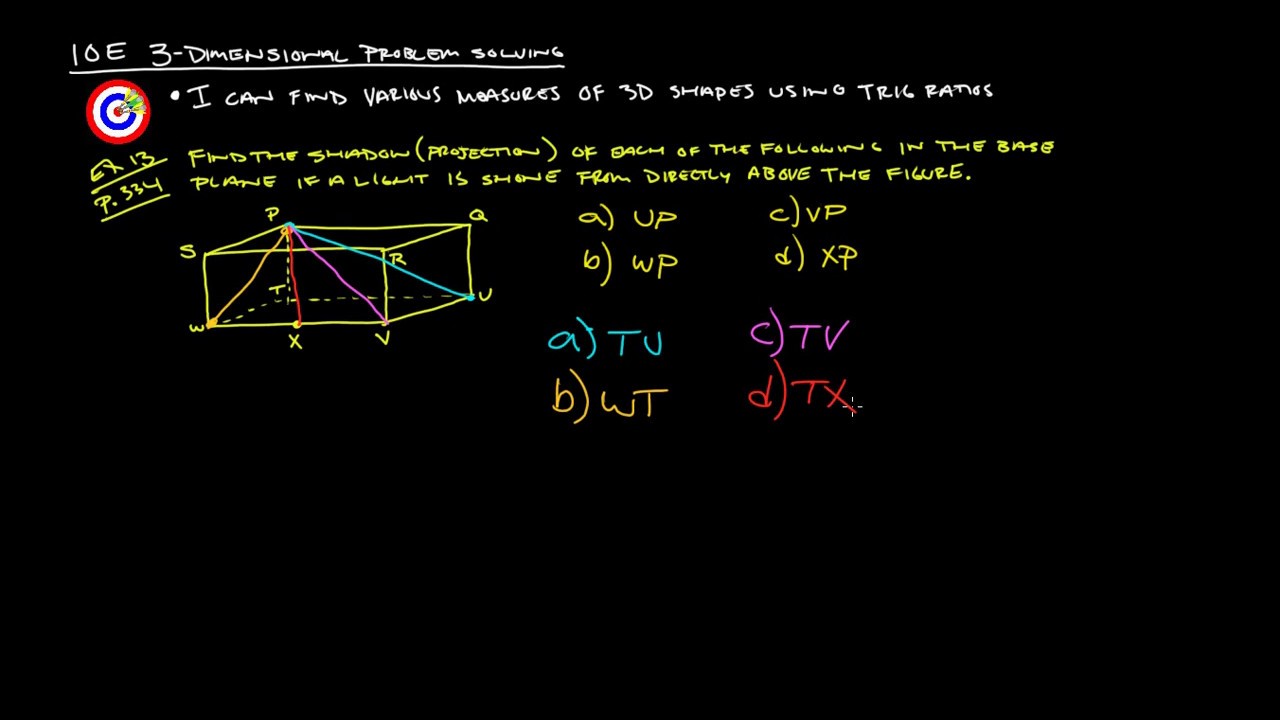 10E 3-DIMENSIONAL PROBLEM SOLVING
• I CAN FIND VARIOUS MEASURES OF 3D SHAPES USING TRIG RATIOS
EX 13
P. 334
FIND THE SHADOW (PROJECTION) OF EACH OF THE FOLLOWING IN THE BASE
PLANE IF A LIGHT IS SHONE FROM DIRECTLY ABOVE THE FIGURE.
P
Q
S
R
T
U
W
X
V
a) UP
c) VP
b) WP
d) XP
a) TU
c) TV
b) WT
d) TX